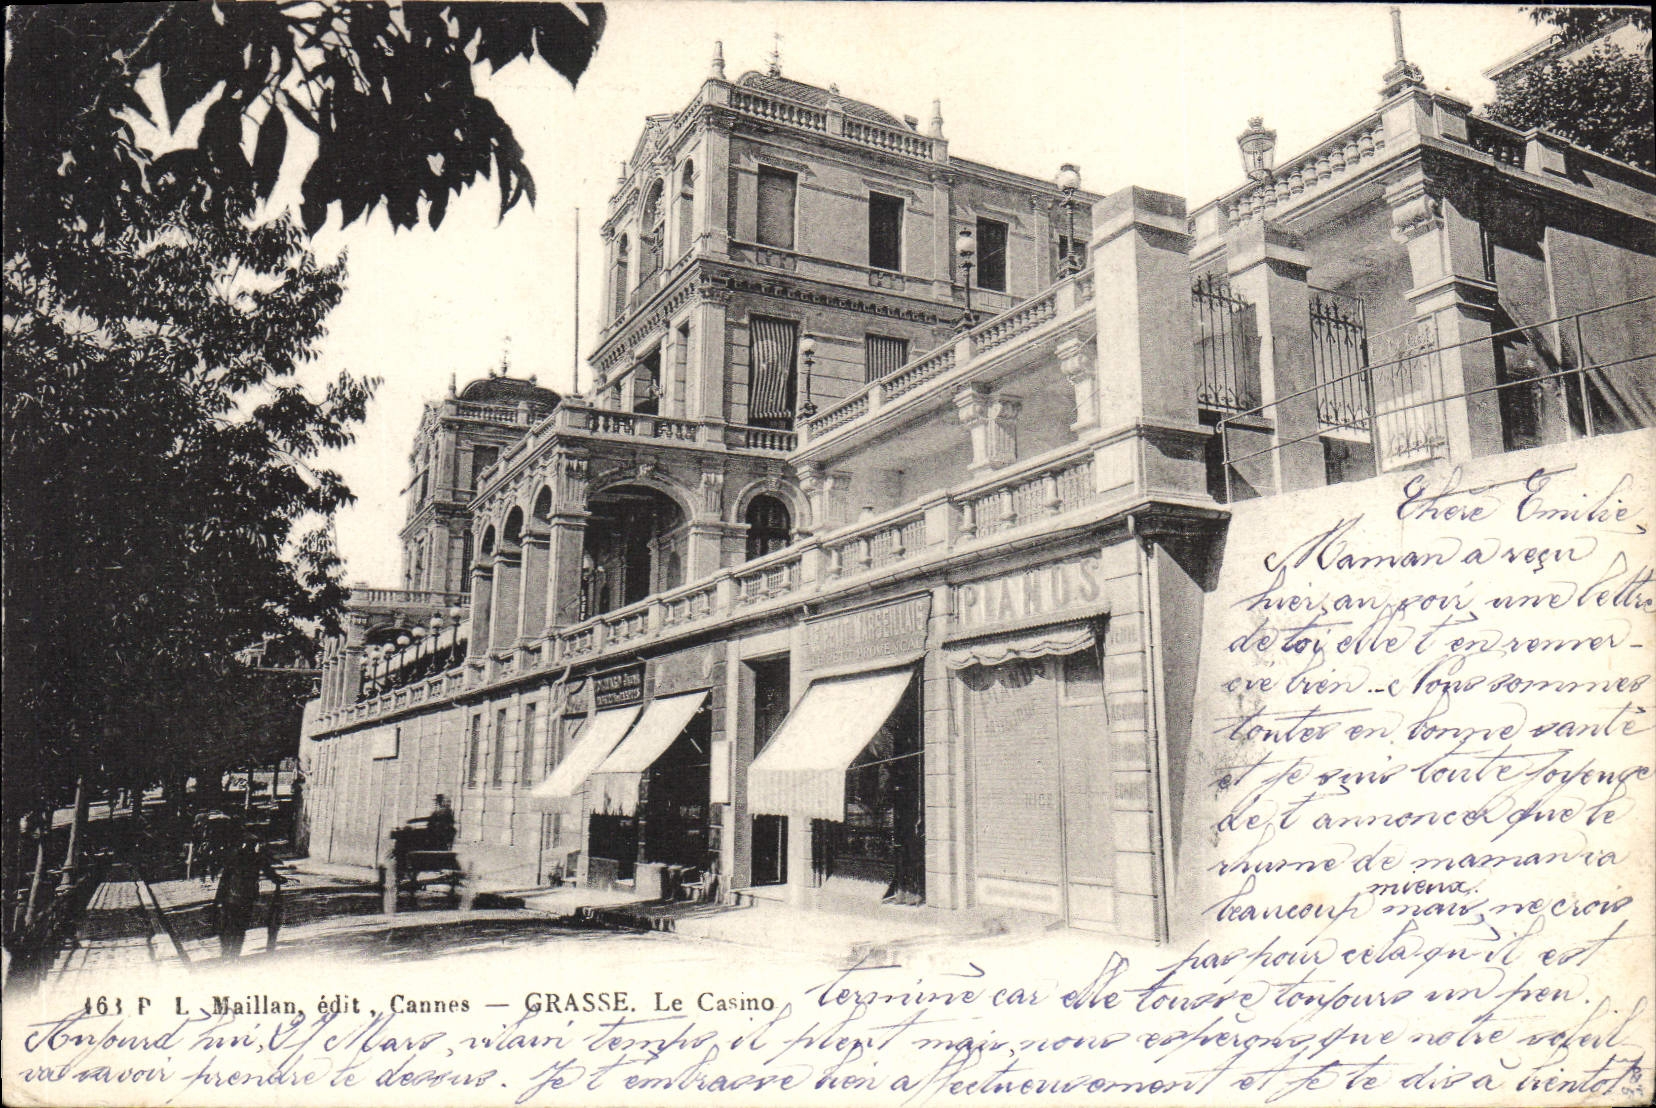 PIANOS
MARSEILLAIS
LE PETIT PROVENÇAL
NICE
Chère Emilie,
Maman a reçu
hier, au soir, une lettre
de toi elle t'en remer-
cie bien.. Nous sommes
toutes en bonne santé
et je suis toute joyeuse
de t'annoncer que le
rhume de maman va
beaucoup mieux. mais, ne crois
pas pour cela qu'il est
terminé car elle tousse toujours un peu.
463 P. L. Maillan, édit., Cannes — GRASSE. Le Casino
Aujourd'hui, Mars, vilain temps, il pleut mais, nous espérons, que notre soleil
va savoir prendre le dessus. Je t'embrasse bien affectueusement et je te dis à bientôt